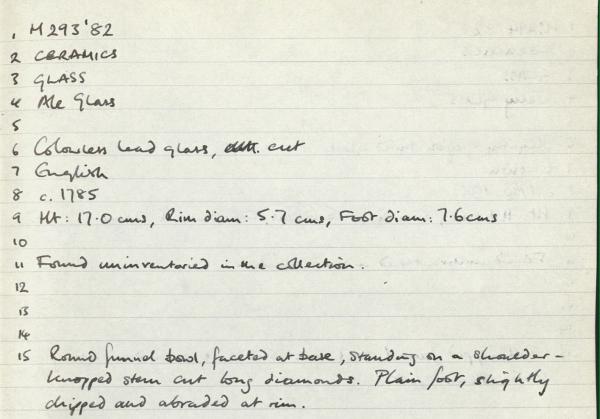 1 M293'82
2 CERAMICS
3 GLASS
4 Ale Glass
5
6 Colourless lead glass, cut
7 English
8 c. 1785
9 Ht: 17.0 cms, Rim diam: 5.7 cms, Foot diam: 7.6 cms
10
11 Found uninventoried in the collection.
12
13
14
15 Round funnel bowl, faceted at base, standing on a shoulder-
knopped stem cut long diamonds. Plain foot, slightly
chipped and abraded at rim.